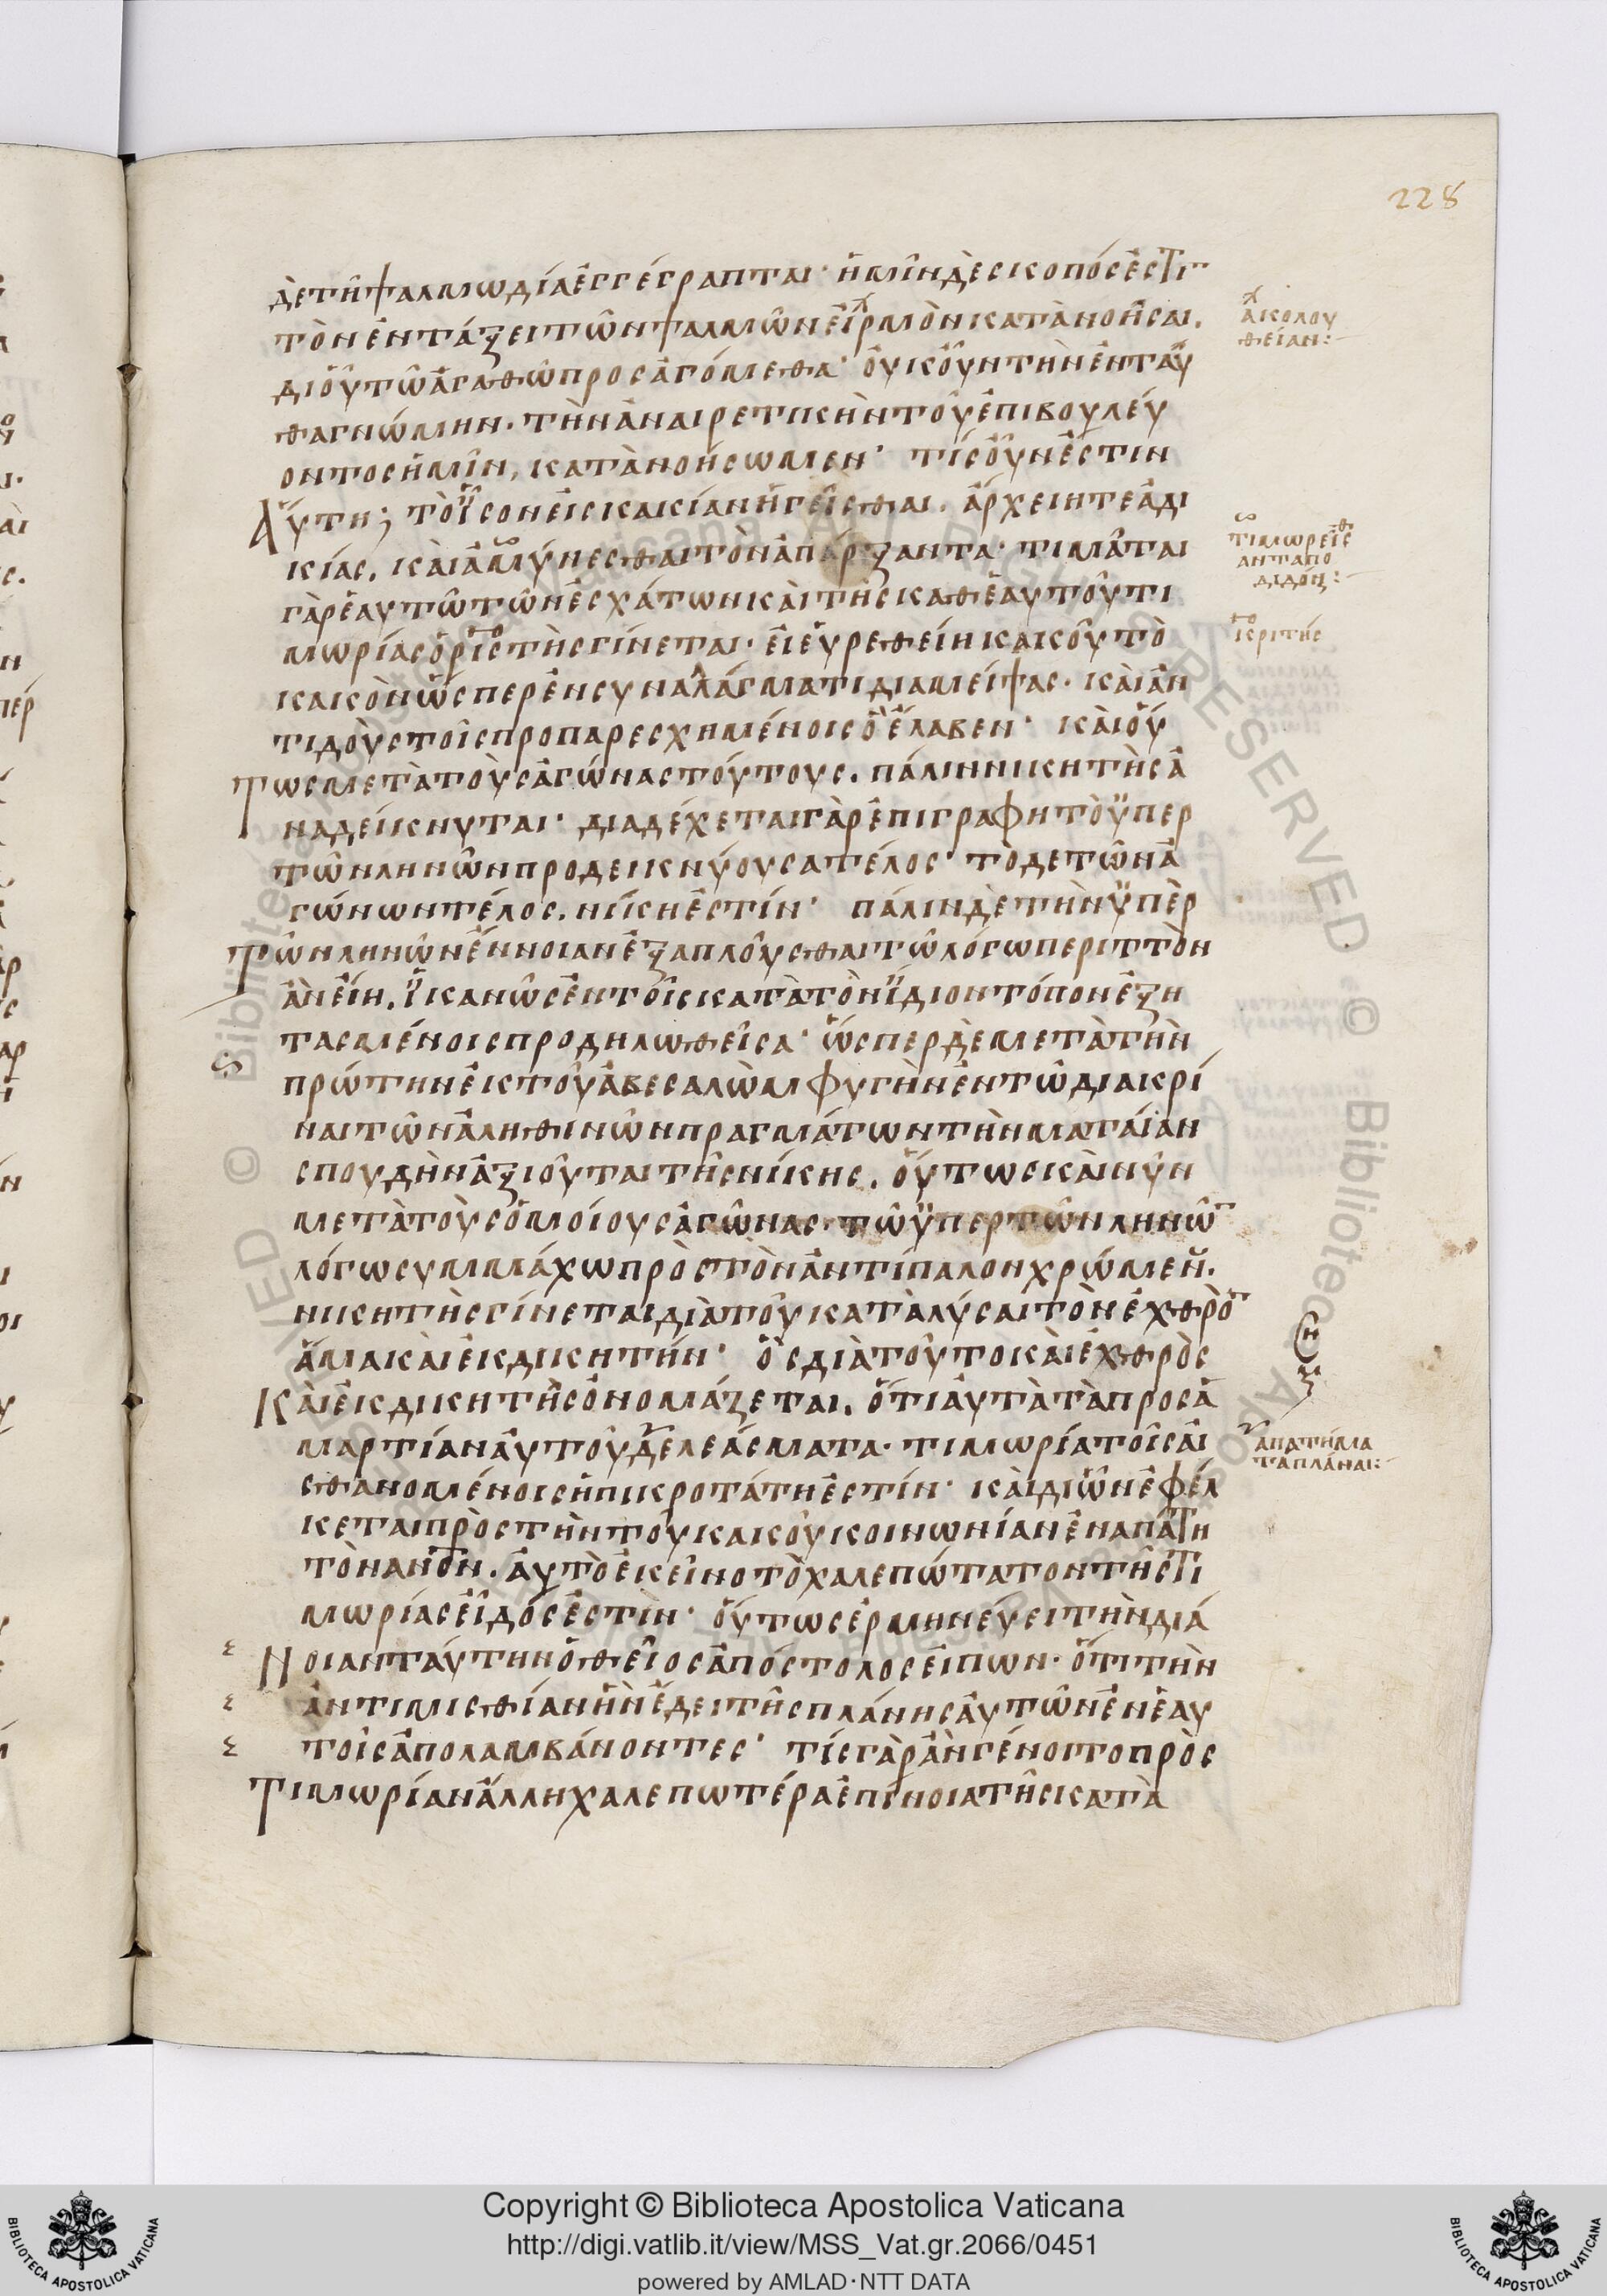 228
δὲ τῆ ψαλμωδία ἐγγέγραπται· ἡμῖν δὲ σκοπός ἐστι
τὸν ἐν τάξει τῶν ψαλμῶν εἱρμὸν κατανοῆσαι.
ἀκολου
θείαν:
δι' οὗ τῶ ἀγαθῶ προσαγόμεθα· οὐκοῦν τὴν ἐνταῦ
θα γνώμην. τὴν ἀναιρετικὴν τοῦ ἐπιβουλεύ
οντος ἡμῖν, κατανοήσωμεν· τίς οὖν ἐστιν
αὕτη; τὸ ἴσον εἰς κακίαν ἡγεῖσθαι. ἄρχειν τε ἀδι
κίας. καὶ ἀμύνεσθαι τὸν ἀπάρξαντα· τιμᾶται
τιμωρεῖσθ
ανταπο
διδόν:
γὰρ ἑαυτῶ τῶν ἐσχάτων καὶ τῆς καθ' ἑαυτοῦ τι
μωρίας ὁριστὴς γίνεται· εἰ εὑρεθείη κακοῦ τὸ
κριτής
κακὸν ὥσπερ ἐν συναλάγματι διαμείψας· καὶ ἀν
τιδοὺς τοῖς προπαρεσχημένοις ὃ ἔλαβεν· καὶ οὕ
τως μετὰ τοὺς ἀγώνας τούτους. πάλιν νικητὴς ἀ
ναδείκνυται· διαδέχεται γὰρ ἐπιγραφη τὸ ὑπερ
τῶν ληνῶν προδεικνύουσα τέλος· τὸ δε τῶν ἀ
γώνων τέλος. νίκη ἐστίν· πάλιν δὲ τὴν ὑπὲρ
τῶν ληνῶν ἔννοιαν ἐξαπλοῦσθαι τῶ λόγω περιττὸν
ἂν εἴη. ἱκανῶς ἐν τοῖς κατὰ τὸν ἴδιον τόπον ἐξη
τασμένοις προδηλωθεῖσα· ὥσπερ δὲ μετὰ τὴν
πρώτην ἐκ τοῦ ἀβεσαλὼμ φυγὴν ἐν τῶ διακρί
ναι τῶν ἀληθινῶν πραγμάτων τὴν ματαίαν
σπουδὴν ἀξιοῦται τῆς νίκης. οὕτως καὶ νῦν
μετὰ τοὺς ὁμοίους ἀγῶνας· τῶ ὑπερ τῶν ληνῶ
λόγω συμμάχω πρὸς τὸν ἀντίπαλον χρώμεν.
νικητὴς γίνεται διὰ τοῦ καταλύσαι τὸν ἐχθρὸ
ἅμα καὶ ἐκδικητήν· ὃς διὰ τοῦτο καὶ ἐχθρὸς
καὶ ἐκδικητῆς ὀνομάζεται. ὅτι αὐτὰ τὰ προς ἁ
μαρτίαν αὐτοῦ δελεάσματα· τιμωρία τοῖς αἰ
απατήμα
τα πλάναι:
σθανομένοις ἡ πικροτάτη ἐστίν· καὶ δι' ὧν ἐφέλ
κεται πρὸς τὴν τοῦ κακοῦ κοινωνίαν ἐν απάτη
τὸν ανον. αὐτὸ ἐκεῖνο τὸ χαλεπώτατον τῆς τι
μωρίας εἶδός ἐστιν· οὕτως ἑρμηνεύει τὴν διά
νοιαν ταύτην ὁ θεῖος ἀπόστολος εἰπων· ὅτι τὴν
ἀντιμισθίαν ἣν ἔδει τῆς πλάνης αὐτῶν ἐν ἑαυ
τοῖς ἀπολαμβάνοντες· τίς γὰρ ἂν γένοιτο πρὸς
τιμωρίαν ἄλλη χαλεπωτέρα ἐπίνοια τῆς κατὰ
Copyright © Biblioteca Apostolica Vaticana
http://digi.vatlib.it/view/MSS_Vat.gr.2066/0451
powered by AMLAD·NTT DATA